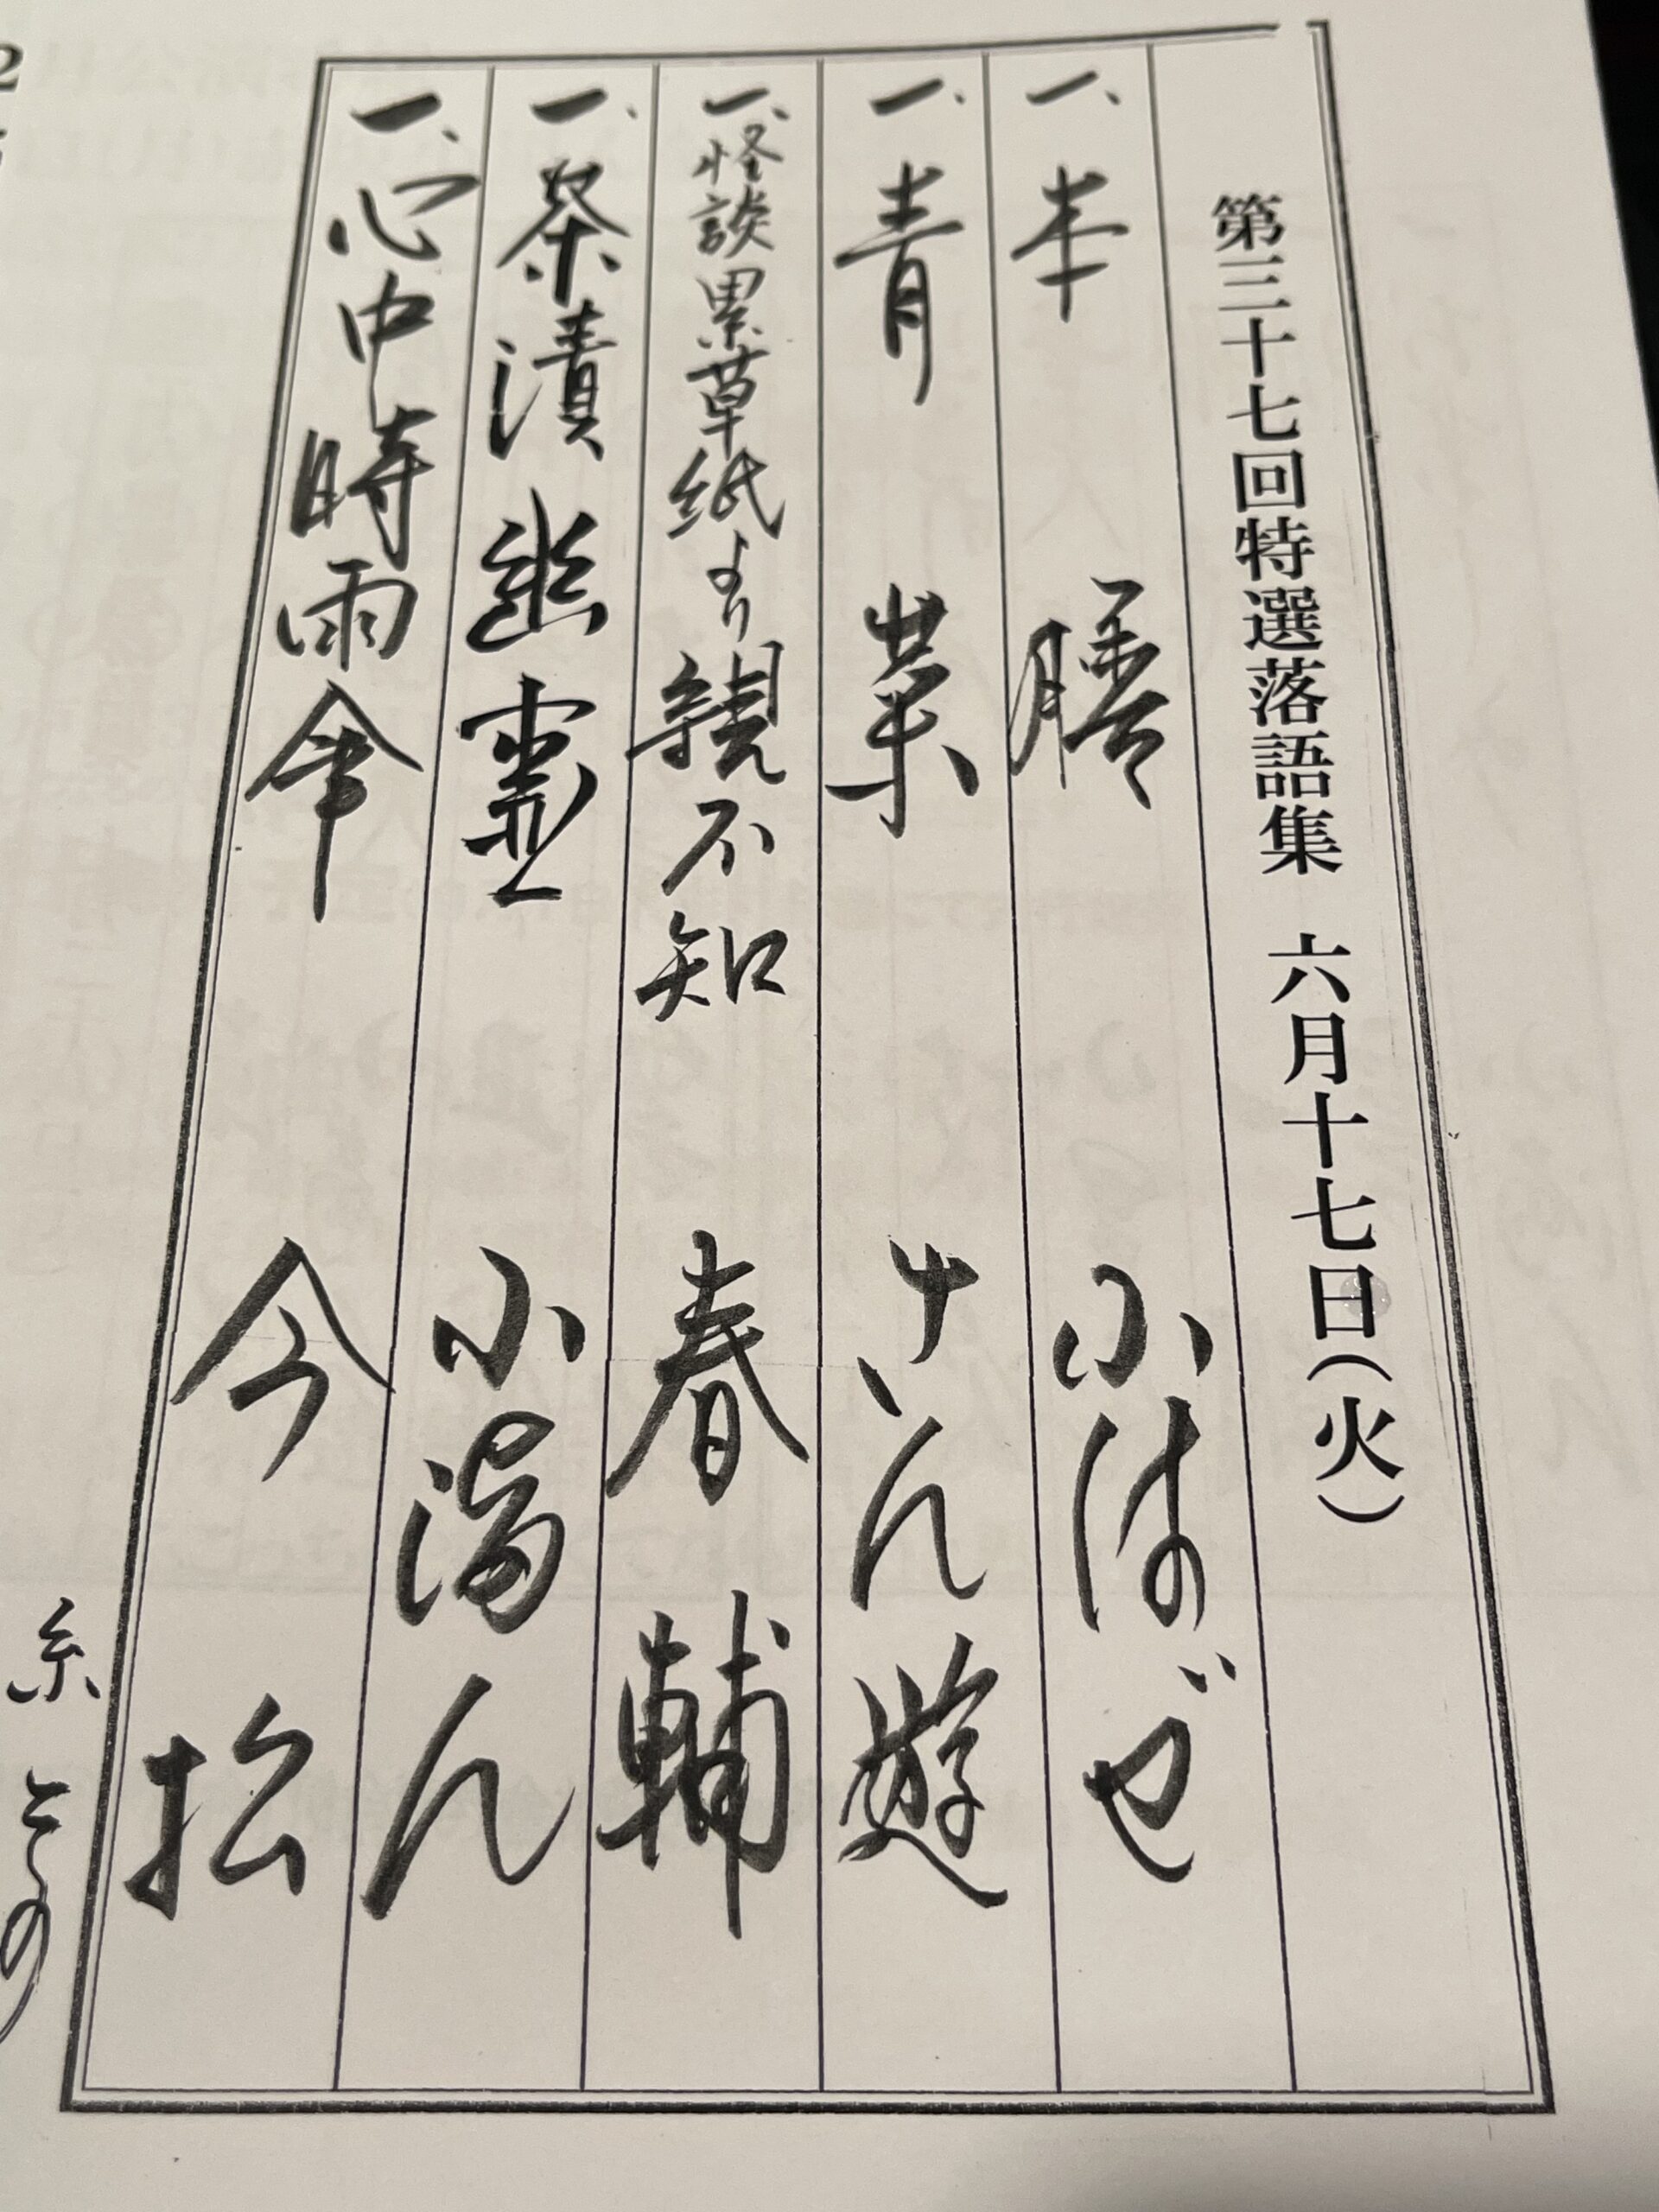 第三十七回特選落語集 六月十七日(火)
一、本膳 小はぜ
一、青菜 さん遊
一、怪談累草紙より親不知 春輔
一、茶漬幽霊 小満ん
一、心中時雨傘 今松